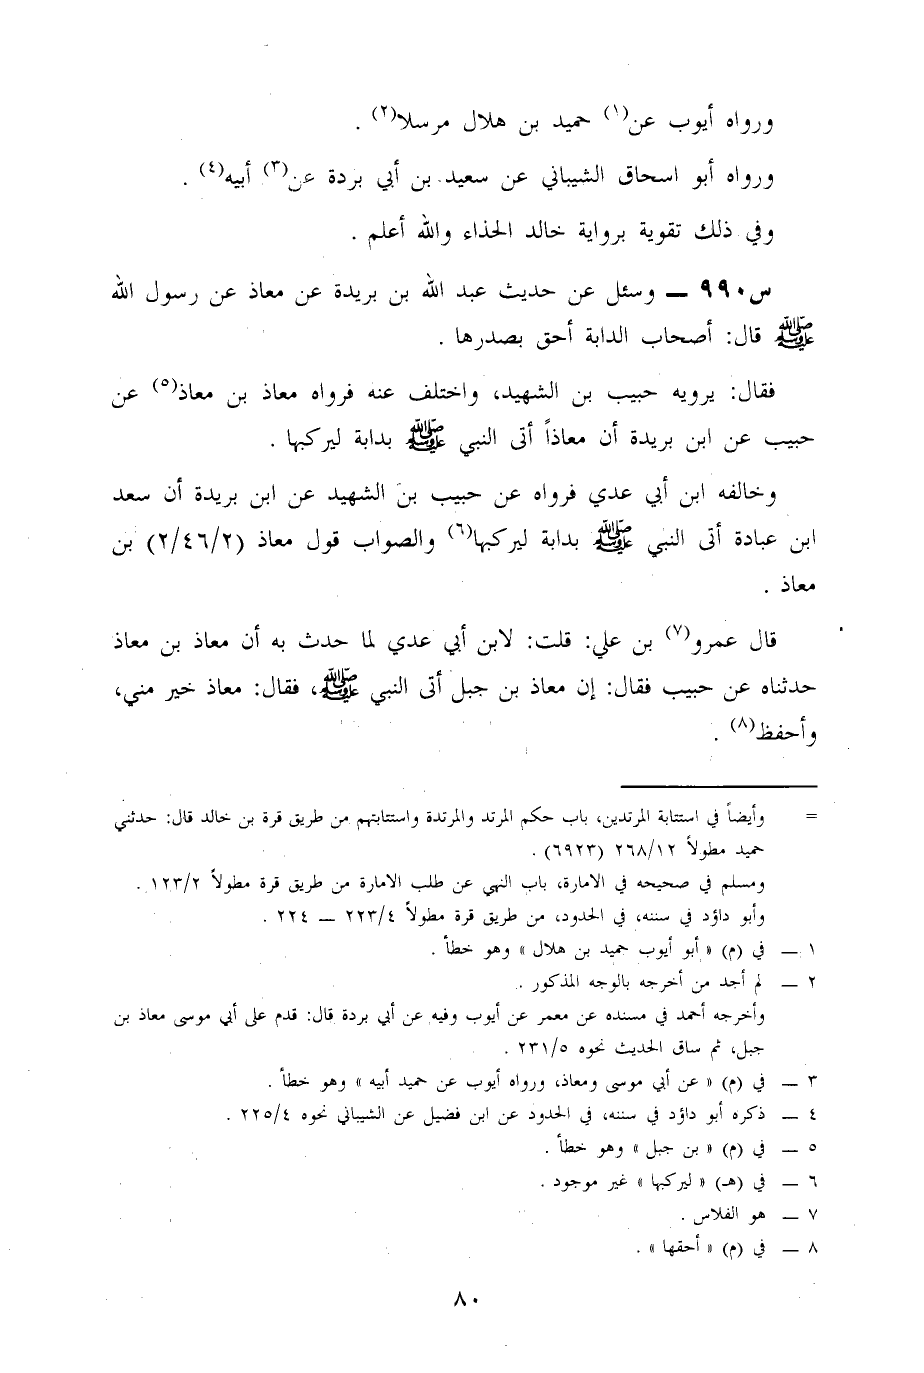 ورواه أيوب عن(١) حميد بن هلال مرسلا(٢) .
ورواه أبو اسحاق الشيباني عن سعيد بن أبي بردة عن(٣) أبيه(٤) .
وفي ذلك تقوية برواية خالد الحذاء والله أعلم .
س٩٩٠ — وسئل عن حديث عبد الله بن بريدة عن معاذ عن رسول الله
ﷺ قال: أصحاب الدابة أحق بصدرها .
فقال: يرويه حبيب بن الشهيد، واختلف عنه فرواه معاذ بن معاذ(٥) عن
حبيب عن ابن بريدة أن معاذاً أتى النبي ﷺ بدابة ليركبها .
وخالفه ابن أبي عدي فرواه عن حبيب بن الشهيد عن ابن بريدة أن سعد
ابن عبادة أتى النبي ﷺ بدابة ليركبها(٦) والصواب قول معاذ (٢/٤٦/٢) بن
معاذ .
قال عمرو(٧) بن علي: قلت: لابن أبي عدي لما حدث به أن معاذ بن معاذ
حدثناه عن حبيب فقال: إن معاذ بن جبل أتى النبي ﷺ، فقال: معاذ خير مني،
وأحفظ(٨) .
= وأيضاً في استتابة المرتدين، باب حكم المرتد والمرتدة واستتابتهم من طريق قرة بن خالد قال: حدثني
حميد مطولاً ٢٦٨/١٢ (٦٩٢٣) .
ومسلم في صحيحه في الامارة، باب النهي عن طلب الامارة من طريق قرة مطولاً ١٢٣/٢ .
وأبو داؤد في سننه، في الحدود، من طريق قرة مطولاً ٢٢٣/٤ — ٢٢٤ .
١ — في (م) « أبو أيوب حميد بن هلال » وهو خطأ .
٢ — لم أجد من أخرجه بالوجه المذكور .
وأخرجه أحمد في مسنده عن معمر عن أيوب وفيه عن أبي بردة قال: قدم على أبي موسى معاذ بن
جبل، ثم ساق الحديث نحوه ٢٣١/٥ .
٣ — في (م) « عن أبي موسى ومعاذ، ورواه أيوب عن حميد أبيه » وهو خطأ .
٤ — ذكره أبو داؤد في سننه، في الحدود عن ابن فضيل عن الشيباني نحوه ٢٢٥/٤ .
٥ — في (م) « بن جبل » وهو خطأ .
٦ — في (هـ) « ليركبها » غير موجود .
٧ — هو الفلاس .
٨ — في (م) « أحقها » .
٨٠